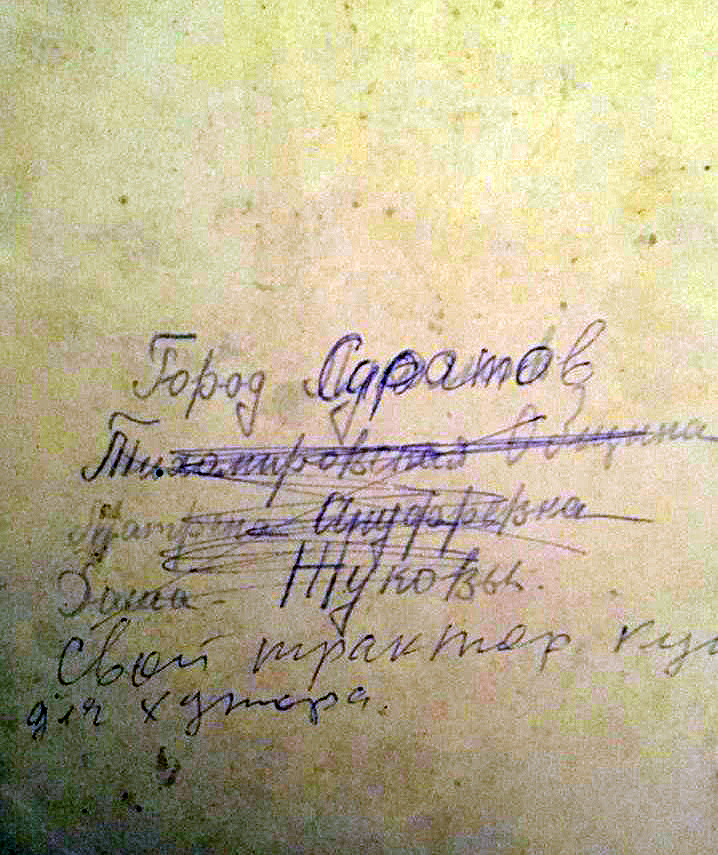 Город Саратов
Тихомировская Община
Матрёна Ануфревна
Жуковы.
Свой трактор
для хутора.